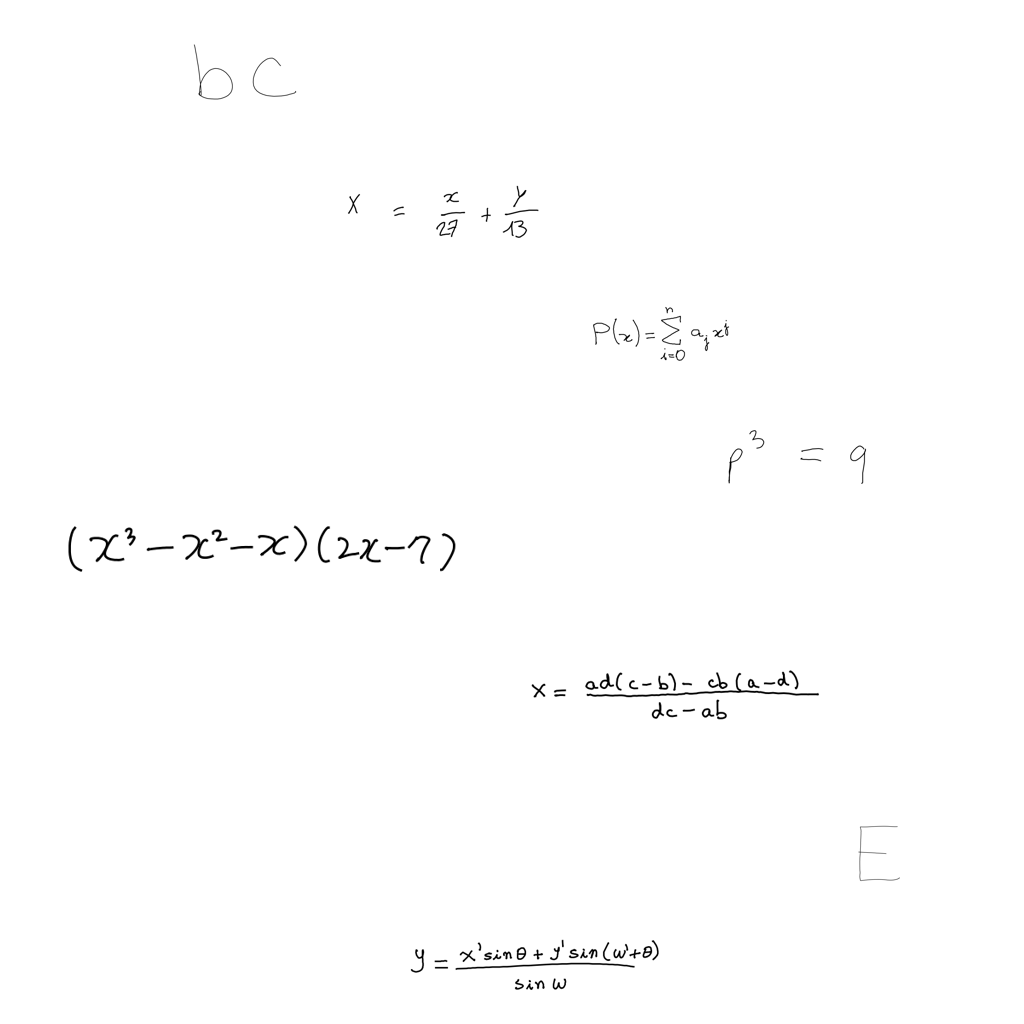 b c
x = x/27 + y/13
P(x) = ∑_{i=0}^{n} a_j x^j
p^3 = q
(x^3 - x^2 - x)(2x - 7)
x = (ad(c-b) - cb(a-d))/(dc - ab)
E
y = (x' sin θ + y' sin(ω' + θ))/(sin ω)